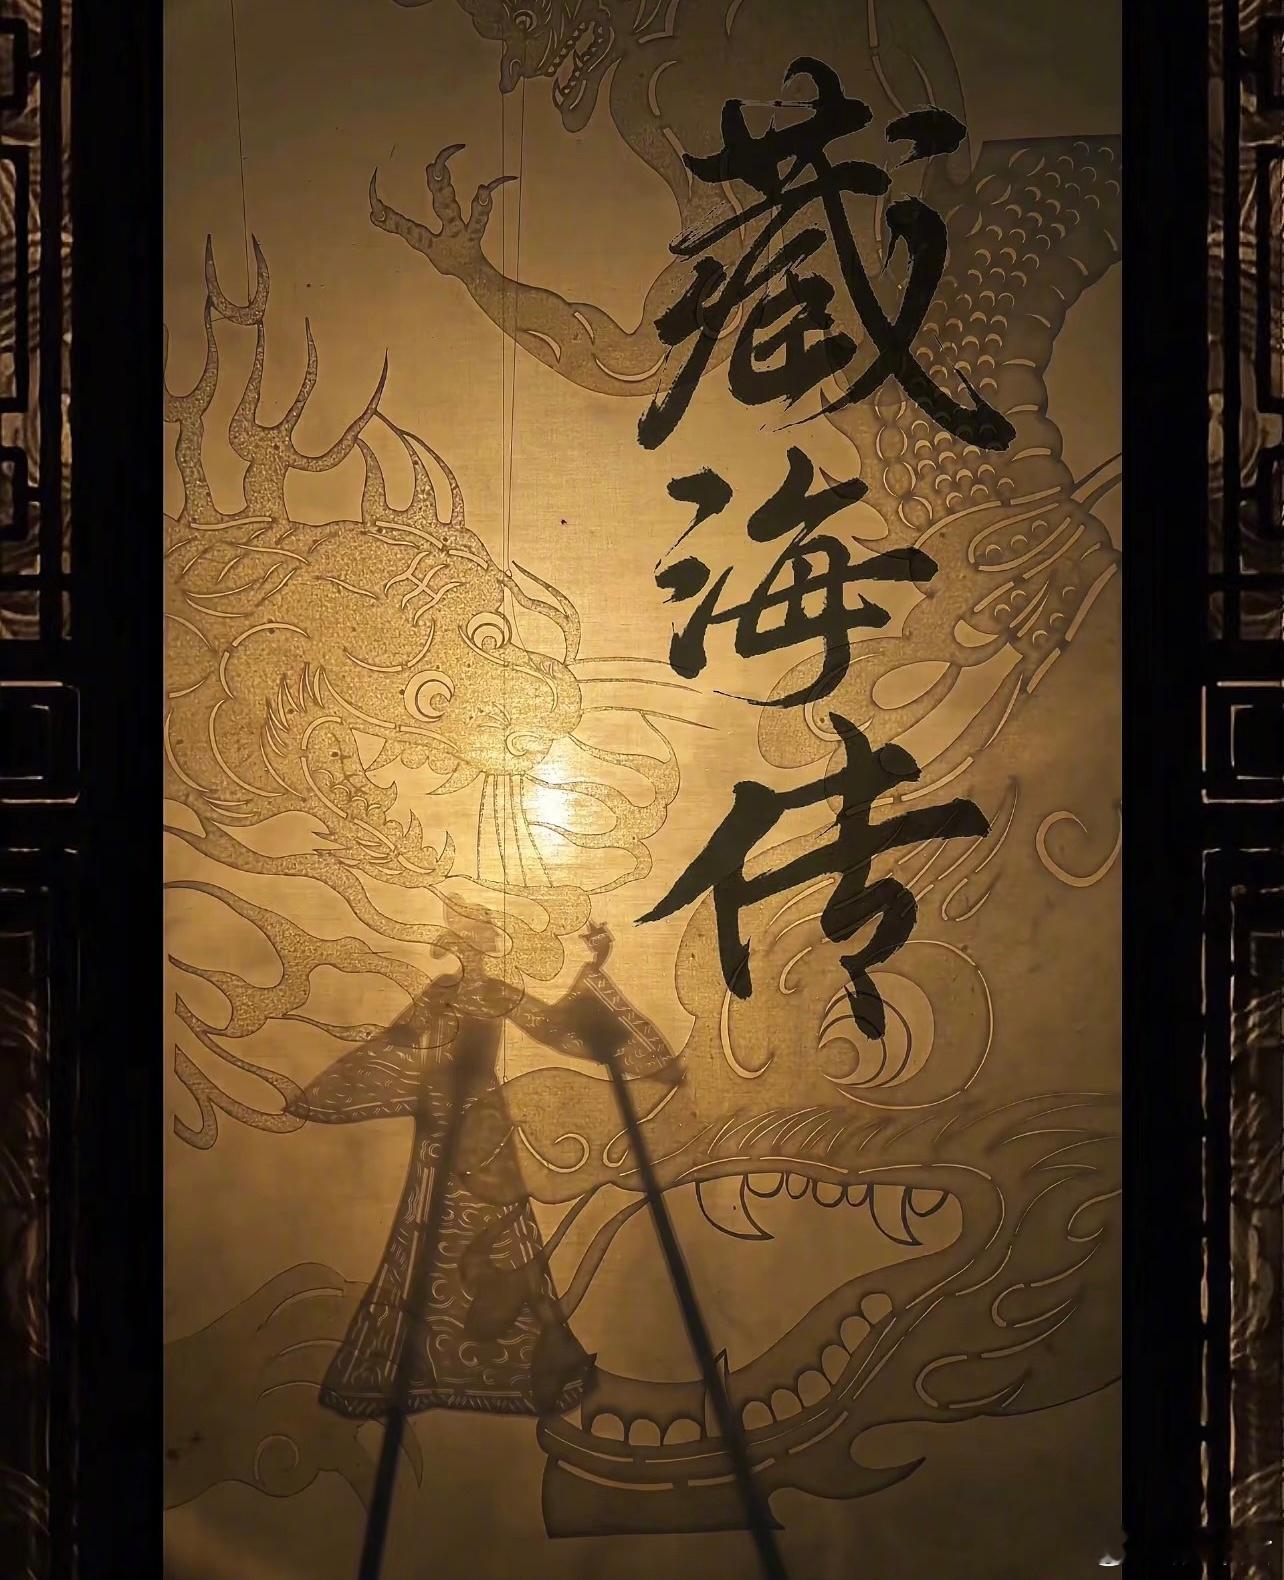 藏海传